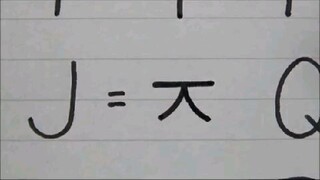 J = ㅈ Q